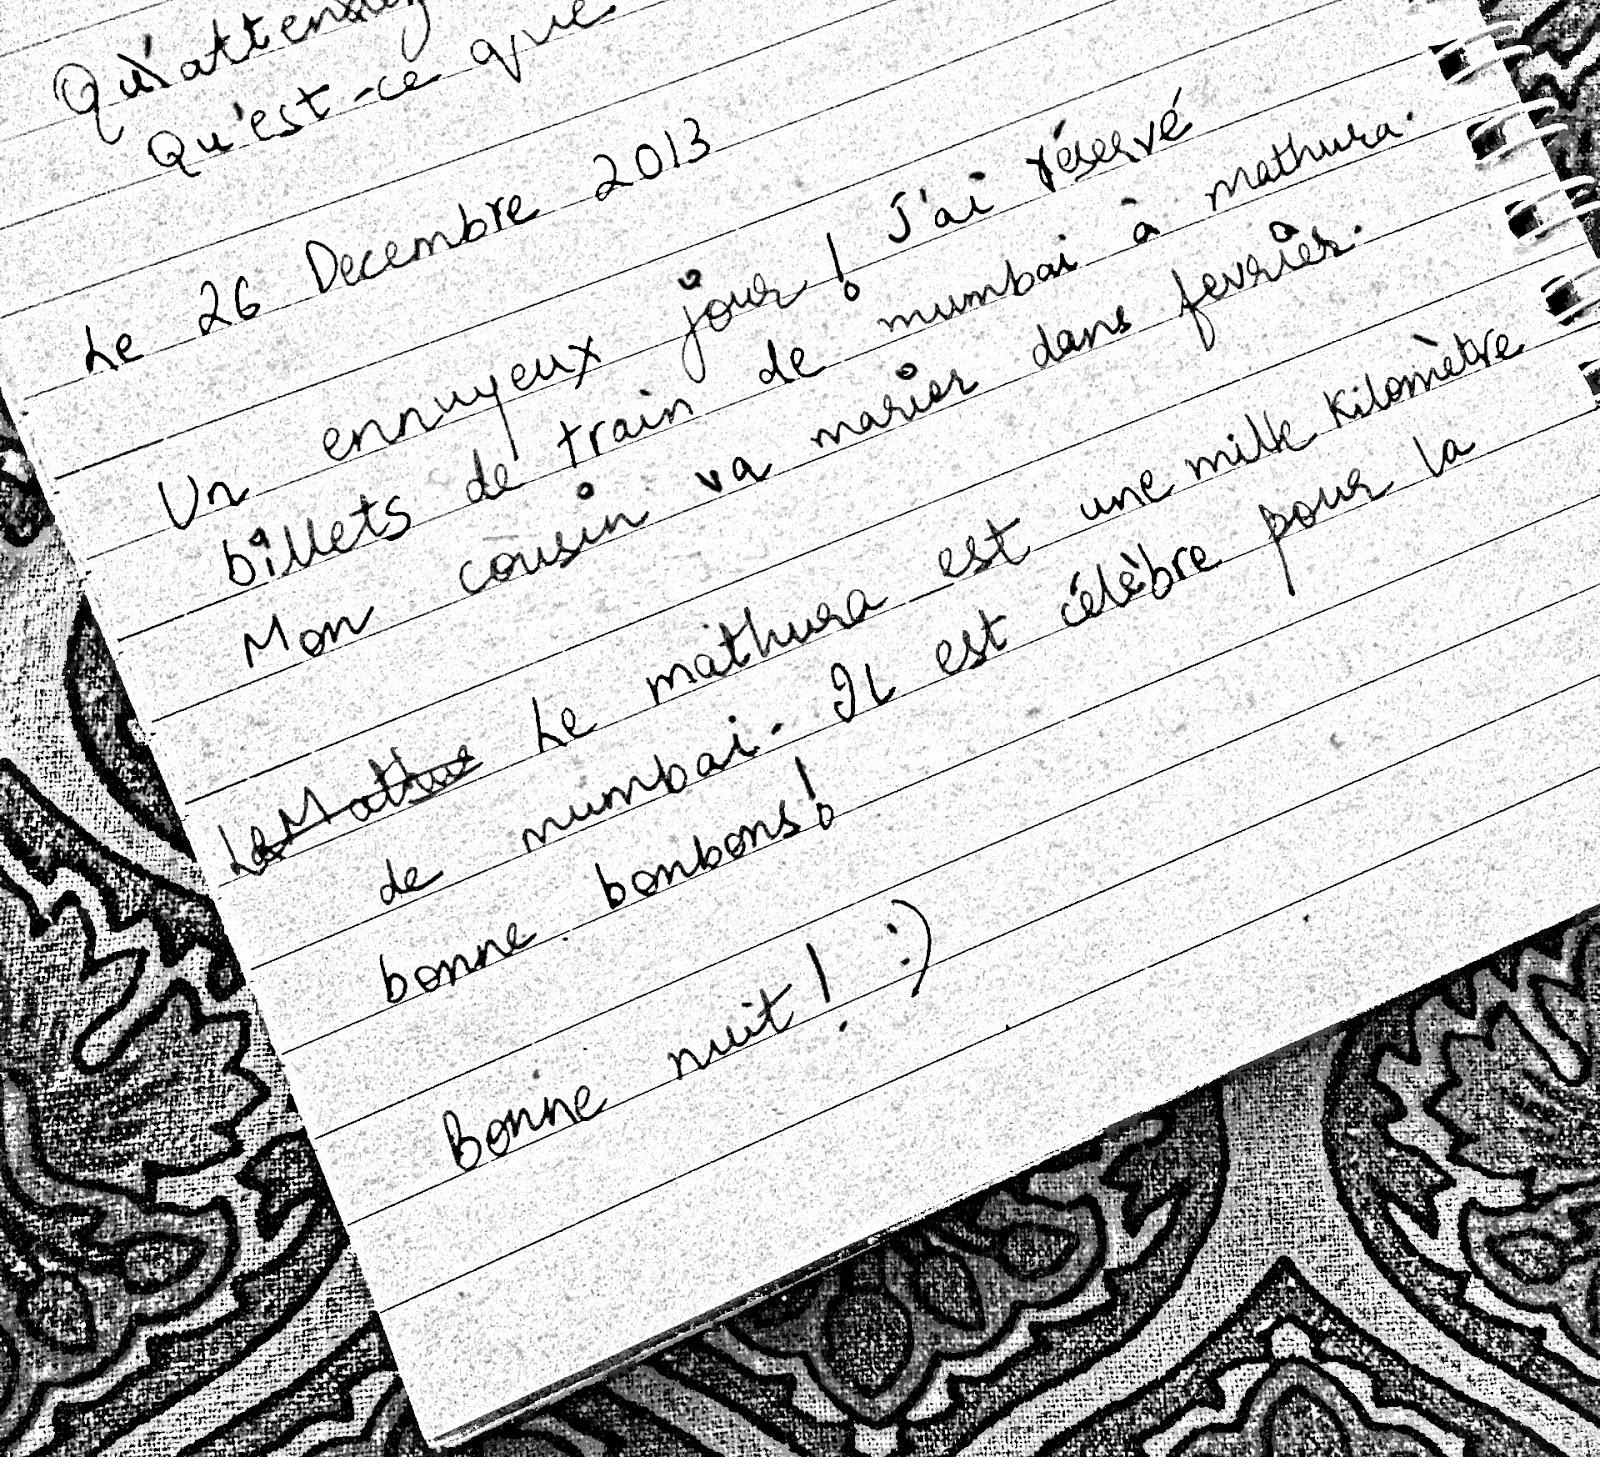 Qu'attendez
Qu'est-ce que
Le 26 Decembre 2013
Un ennuyeux jour! J'ai réservé
billets de train de mumbai à mathura.
Mon cousin va marier dans fevrièr.
Le mathura est une mille kilomètre
de mumbai. Il est célèbre pour la
bonne bonbons!
Bonne nuit! :)